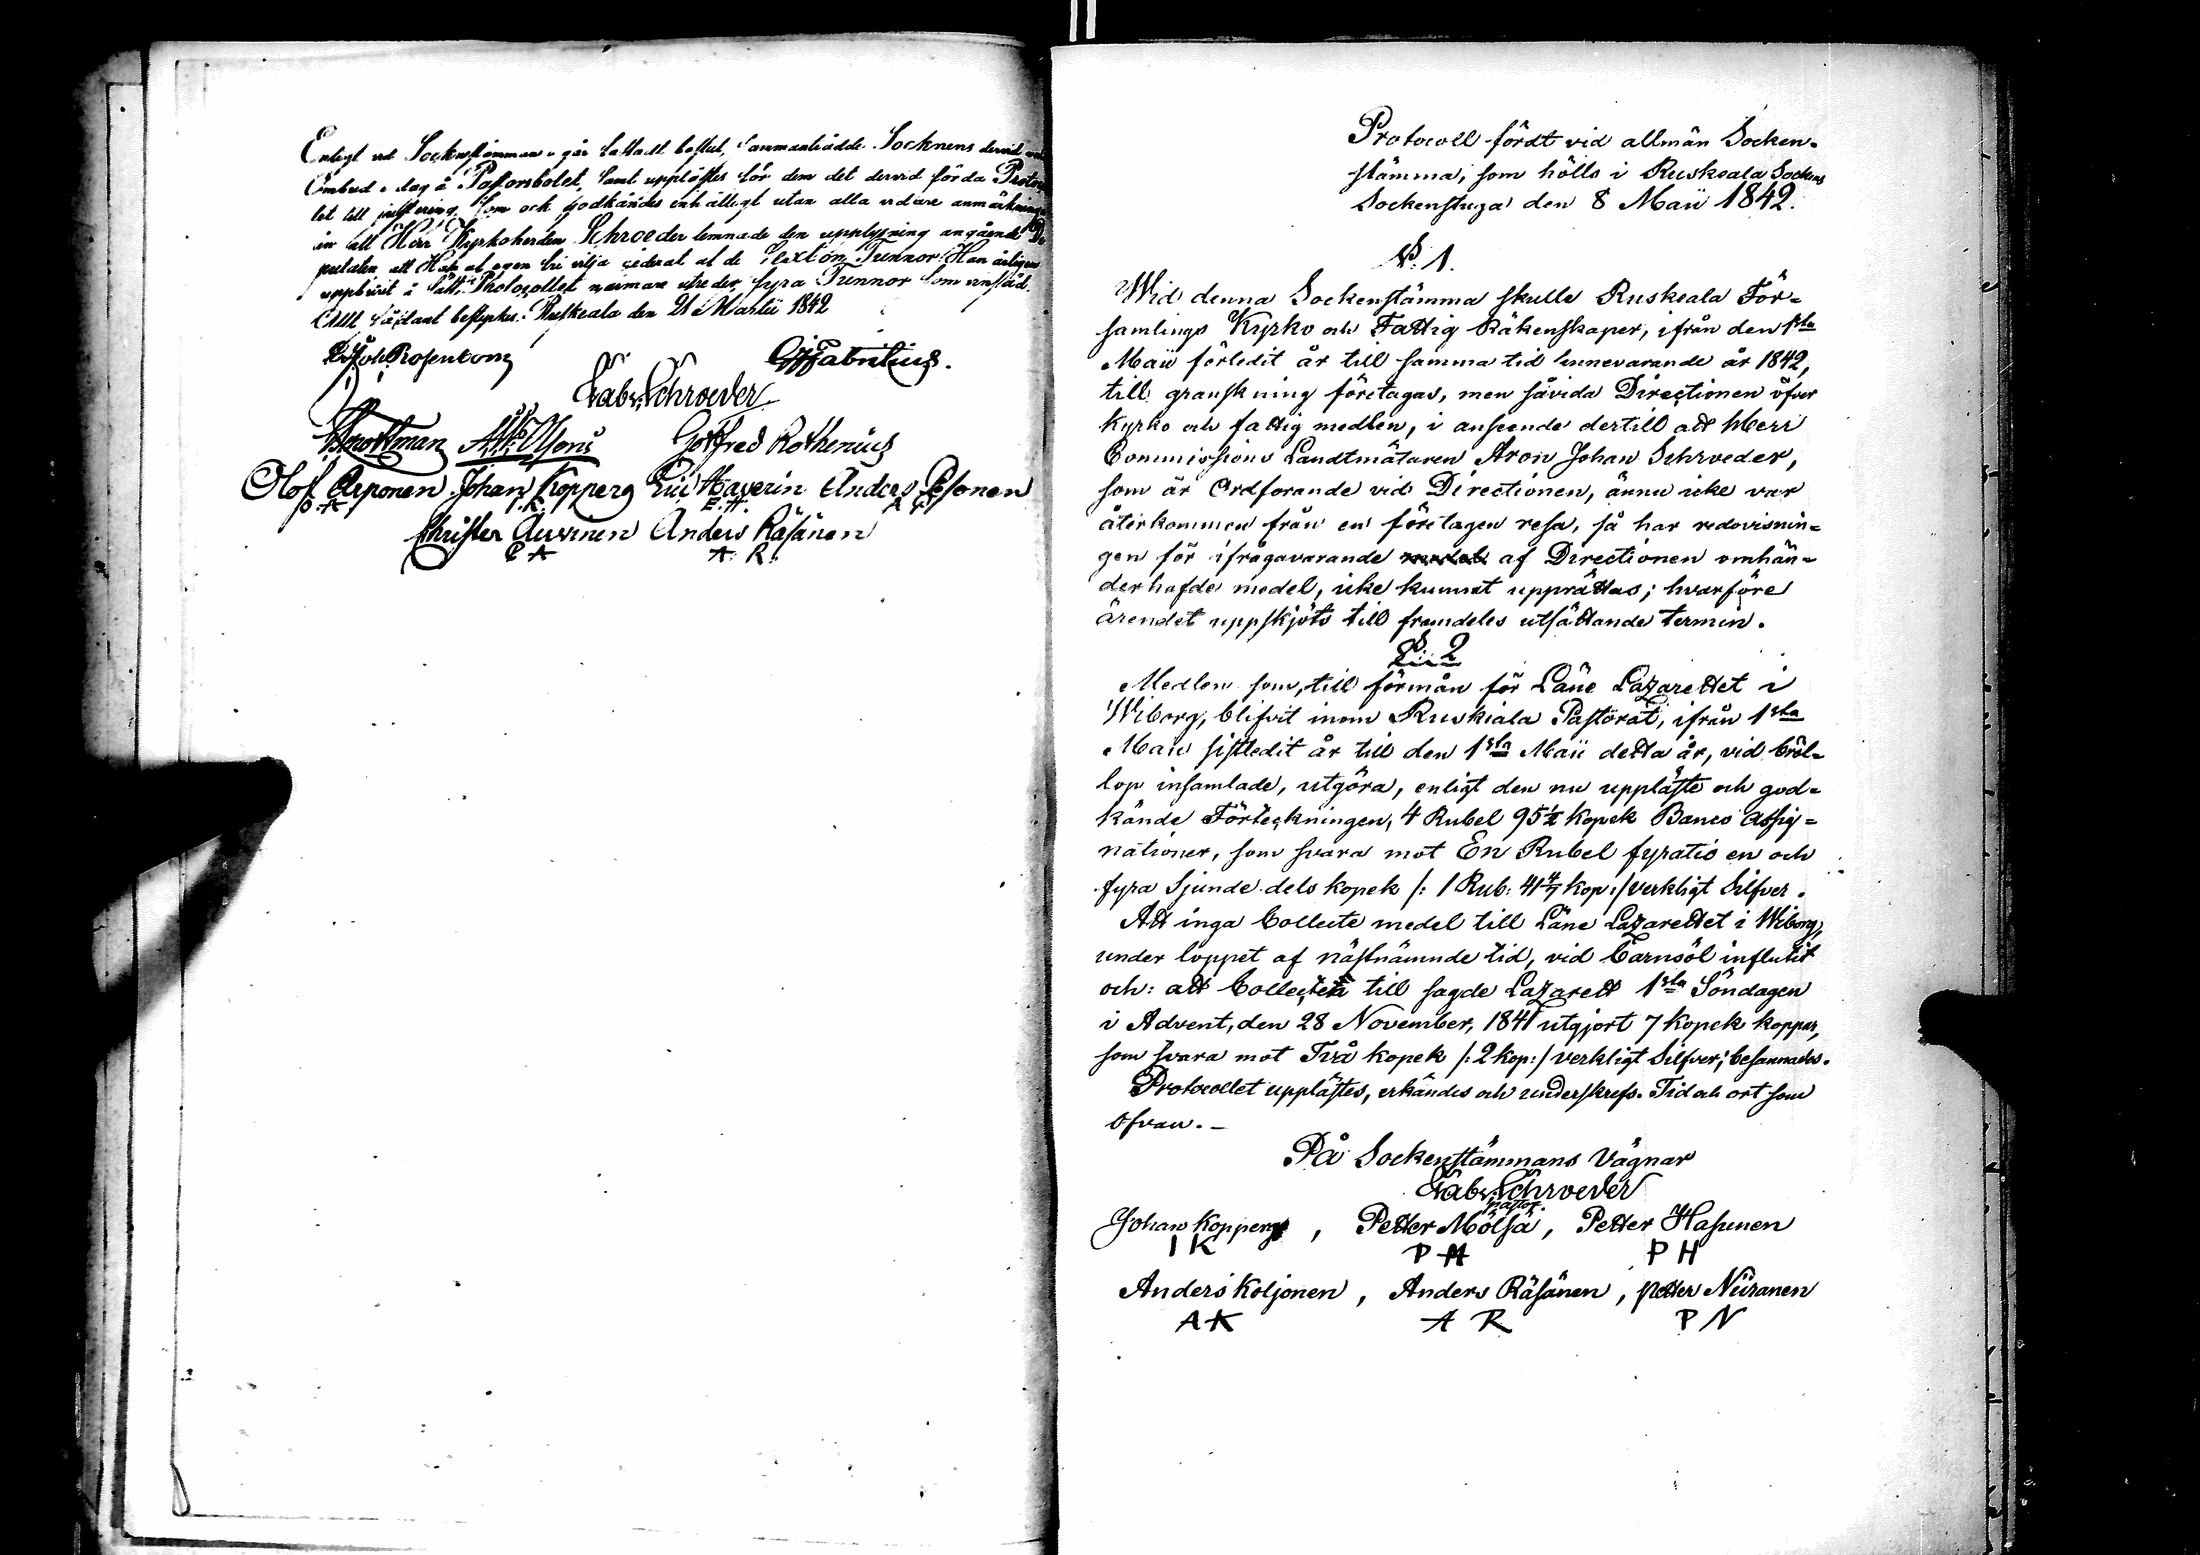 Enligt vid Socknestämman i går fattadt beslut, sammanträdde Socknens dervid
Ombud i dag å Pastorsbolet, samt upplästes för dem det dervid förda Proto
let till justering, som ock godkändes enhälligt utan alla vidare anmärkningar
än att Herr Kyrkoherden Schroeder lemnade den upplysning angående
att Han af egen fri vilja cederat af de Sexton Tunnor Han årligen
uppburit å sätt Protocollet närmare utreder, fyra Tunnor som
Att sådant bestyrkes. Ruskeala den 21 Martii 1842
Joh Rosenbom GFabritius.
Gabr. Schroeder
Gottfred Rothenius
Olof Arponen Johan Kopperg Eric Hayerin Anders Pesonen
O. A. I. K. E. H. A P
Christer Auvinen Anders Räsänen
C A A. R.
Protocoll fördt vid allmän Socken-
stämma, som hölls i Ruskeala Sockens
Sockenstuga den 8 Maii 1842.
§. 1.
Wid denna Sockenstämma skulle Ruskeala För-
samlings Kyrko och Fattig Räkenskaper, ifrån den 1sta
Maii förledit år till samma tid innevarande år 1842,
till granskning företagas, men såvida Directionen öfver
Kyrko och fattig medlen, i anseende dertill att Herr
Commissions Landtmätaren Aron Johan Schroeder,
som är Ordförande vid Directionen, ännu icke var
återkommen från en företagen resa, så har redovisnin-
gen för ifrågavarande medel af Directionen omhän-
derhafde medel, icke kunnat upprättas; hvarföre
ärendet uppskjöts till framdeles utsättande termin.
§ 2
Medlen som, till förmån för Läne Lazarettet i
Wiborg, blifvit inom Ruskiala Pastorat, ifrån 1sta
Maii sistledit år till den 1sta Maii detta år, vid bröl-
lop insamlade, utgöra, enligt den nu uppläste och god-
kände Förteckningen, 4 Rubel 95½ Kopek Banco Assig-
nationer, som svara mot En Rubel fyratio en och
fyra Sjunde dels kopek /: 1 Rub: 41 4/7 kop:/ verkligt Silfver.
Att inga Collecte medel till Läne Lazarettet i Wiborg,
under loppet af nästnämnde tid, vid Barnsöl influtit
och: att Collecten till sagde Lazarett 1sta Söndagen
i Advent, den 28 November, 1841 utgjort 7 Kopek koppar,
som svara mot Två kopek /: 2 kop:/ verkligt Silfver; besannades.
Protocollet upplästes, erkändes och underskrefs. Tid och ort som
ofvan. –
På Sockenstämmans Vägnar
Gabr. Schroeder
Pastor.
Johan Kopperg, Petter Mölsä, Petter Hasunen
I K P M P H
Anders Koljonen, Anders Räsänen, Petter Niiranen
A K A R P N